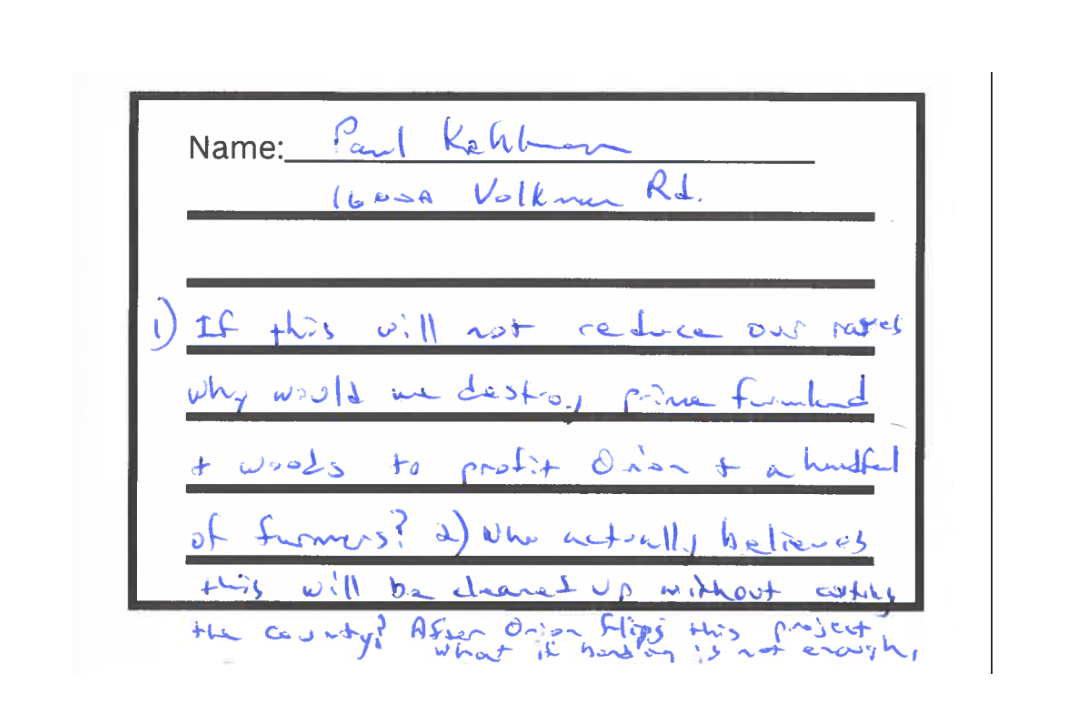 Name: Paul
Volkman Rd.
1) If this will not reduce our rates
why would we destroy prime farmland
+ woods to profit Orion + a handful
of farmers? 2) Who actually believes
this will be cleaned up without costing
the county? After Orion flips this project,
what if bonding is not enough,